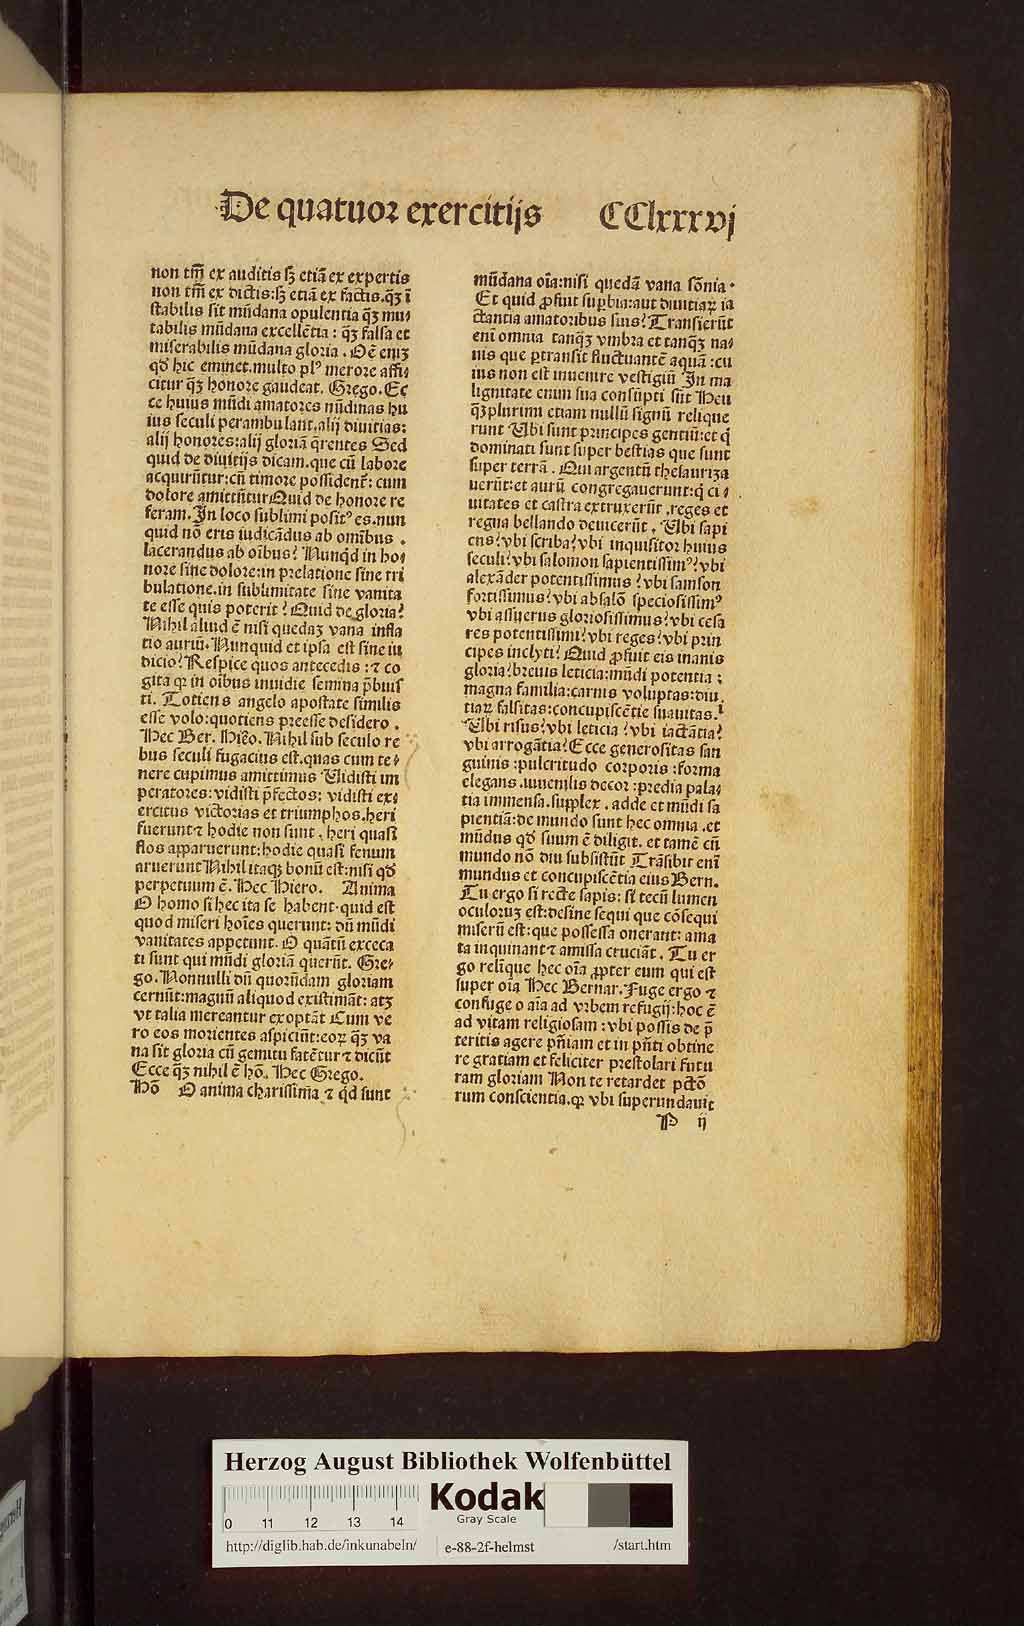 De quatuor exercitijs CClxxxvj
non tm̄ ex auditis sꝫ etiā ex expertis
non tm̄ ex dictis:sꝫ etiā ex factis.qꝫ ī
stabilis sit mūdana opulentia qꝫ mu⸗
tabilis mūdana excellētia : qꝫ falsa et
miserabilis mūdana gloria . Oē eniꝫ
qď hic eminet.multo plꝰ merore affi⸗
citur qꝫ honore gaudeat. Grego. Ec
ce huius mūdi amatores nūdinas hu
ius seculi perambulant.alij diuitias:
alij honores:alij gloriā q̄rentes Sed
quid de diuitijs dicam.que cū labore
acquirūtur:cū timore possidenẽ: cum
dolore amittūtur Quid de honore re
feram. In loco sublimi positꝰ es.nun
quid nō eris iudicādus ab omībus .
lacerandus ab oībus? Nunqd in ho⸗
nore sine dolore:in prelatione sine tri
bulatione.in sublimitate sine vanita
te esse quis poterit? Quid de gloria?
Nihil aliud ē nisi quedaꝫ vana infla
tio auriū. Nunquid et ipsa est sine iu
dicio? Respice quos antecedis : ⁊ co
gita qꝛ in oībus inuidie semina p̄buis
ti. Totiens angelo apostate similis
esse volo:quotiens preesse desidero .
Hec Ber. Hiēo. Nihil sub seculo re
bus seculi fugacius est.quas cum te⸗
nere cupimus amittimus Vidisti im
peratores: vidisti p̄fectos: vidisti ex⸗
ercitus victorias et triumphos.heri
fuerunt ⁊ hodie non sunt . heri quasi
flos apparuerunt:hodie quasi fenum
aruerunt Nihil itaqꝫ bonū est:nisi qď
perpetuum ē. Hec Hiero. Anima
O homo si hec ita se habent quid est
quod miseri hoīes querunt: dū mūdi
vanitates appetunt. O quātū exceca
ti sunt qui mūdi gloriā querūt. Gre⸗
go. Nonnulli dū quorūdam gloriam
cernūt:magnū aliquod existimāt: atqꝫ
vt talia mereantur exoptāt Cum ve
ro eos morientes aspiciūt:eoꝝ qꝫ va
na sit gloria cū gemitu fatētur ⁊ dicūt
Ecce qꝫ nihil ē hō. Hec Grego.
Hō O anima charissīma ⁊ qd sunt
mūdana oīa:nisi quedā vana sōnia .
Et quid ꝓfuit suꝑbia:aut diuitiaꝝ ia
ctantia amatoribus suis? Transierūt
enī omnia tanqꝫ vmbra et tanqꝫ na⸗
uis que ꝑtransit fluctuantē aquā : cu
ius non est inuenire vestigiū In ma
lignitate enim sua consūpti sūt Heu
qꝫ plurimi etiam nullū signū relique
runt Vbi sunt principes gentiū:et q̄
dominati sunt super bestias que sunt
super terrā . Qui argentū thesauriza
uerūt:et aurū congregauerunt:q̄ ci⸗
uitates et castra extruxerūt .reges et
regna bellando deuicerūt . Vbi sapi
ens? vbi scriba? vbi inquisitor huius
seculi? vbi salomon sapientissimꝰ? vbi
alexāder potentissimus ? vbi samson
fortissimus? vbi absalō speciosissimꝰ
vbi assuerus gloriosissimus? vbi cesa
res potentissimi? vbi reges? vbi prin
cipes inclyti? Quid ꝓfuit eis inanis
gloria? breuis leticia: mūdi potentia :
magna familia:carnis voluptas:diui
tiaꝝ falsitas:concupiscētie suauitas.
Vbi risus? vbi leticia ? vbi iactātia?
vbi arrogātia? Ecce generositas san
guinis :pulcritudo corporis :forma
elegans .iuuenilis decor :predia pala⸗
tia immensa.supplex . adde et mūdi sa
pientiā:de mundo sunt hec omnia .et
mūdus qď suum ē diligit. et tamē cū
mundo nō diu subsistūt Trāsibit enī
mundus et concupiscētia eius Bern.
Tu ergo si recte sapis: si tecū lumen
oculoruꝫ est:desine sequi que cōsequi
miserū est:que possessa onerant: ama
ta inquinant ⁊ amissa cruciāt. Tu er
go relīque hec oīa ꝓpter eum qui est
super oīa Hec Bernar. Fuge ergo ⁊
confuge o aīa ad vrbem refugij:hoc ē
ad vitam religiosam :vbi possis de p̄
teritis agere pn̄iam et in pn̄ti obtine
re gratiam et feliciter prestolari futu
ram gloriam Non te retardet pctō
rum conscientia.qꝛ vbi superundauit
P ij
Herzog August Bibliothek Wolfenbüttel
0 11 12 13 14
Kodak
Gray Scale
http://diglib.hab.de/inkunabeln/ e-88-2f-helmst /start.htm